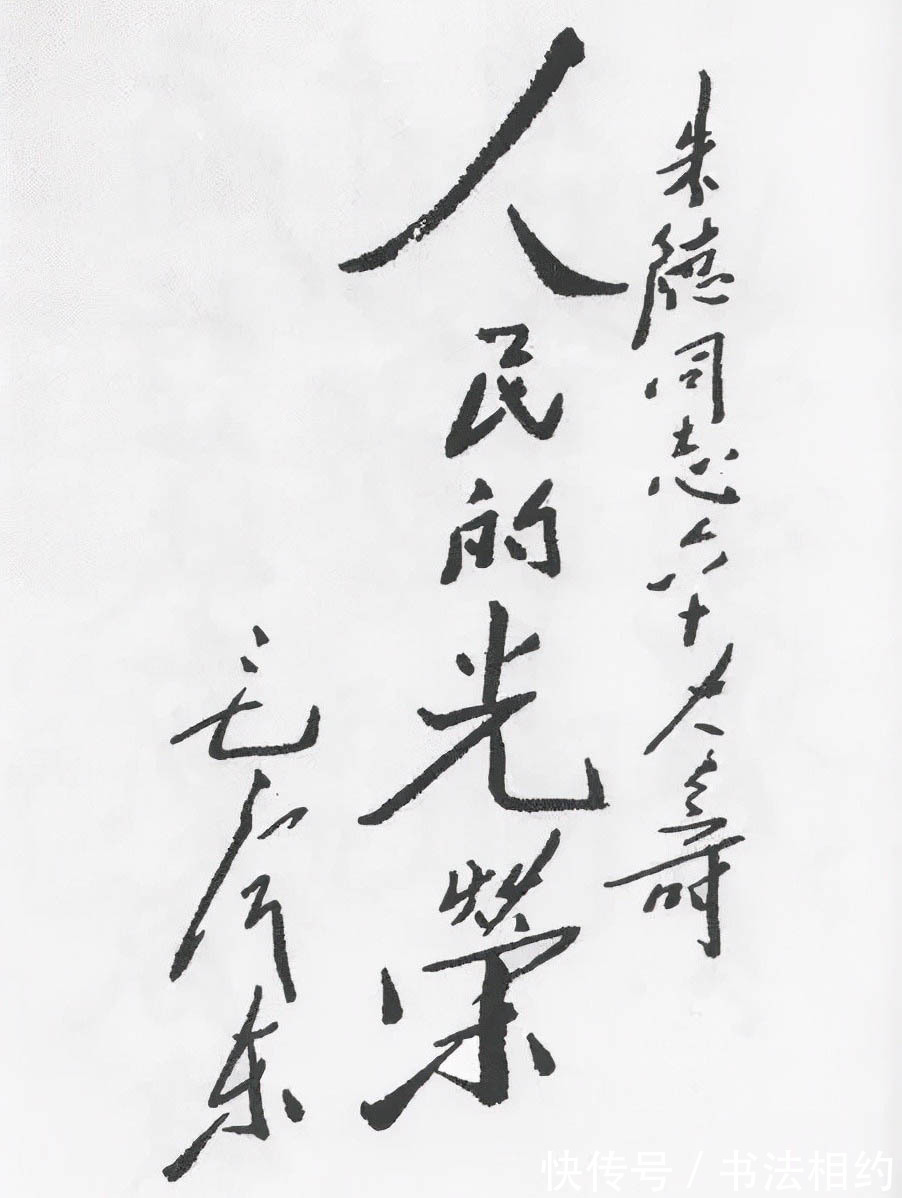 朱德同志六十大寿
人民的光荣
毛泽东
快传号 / 书法相约